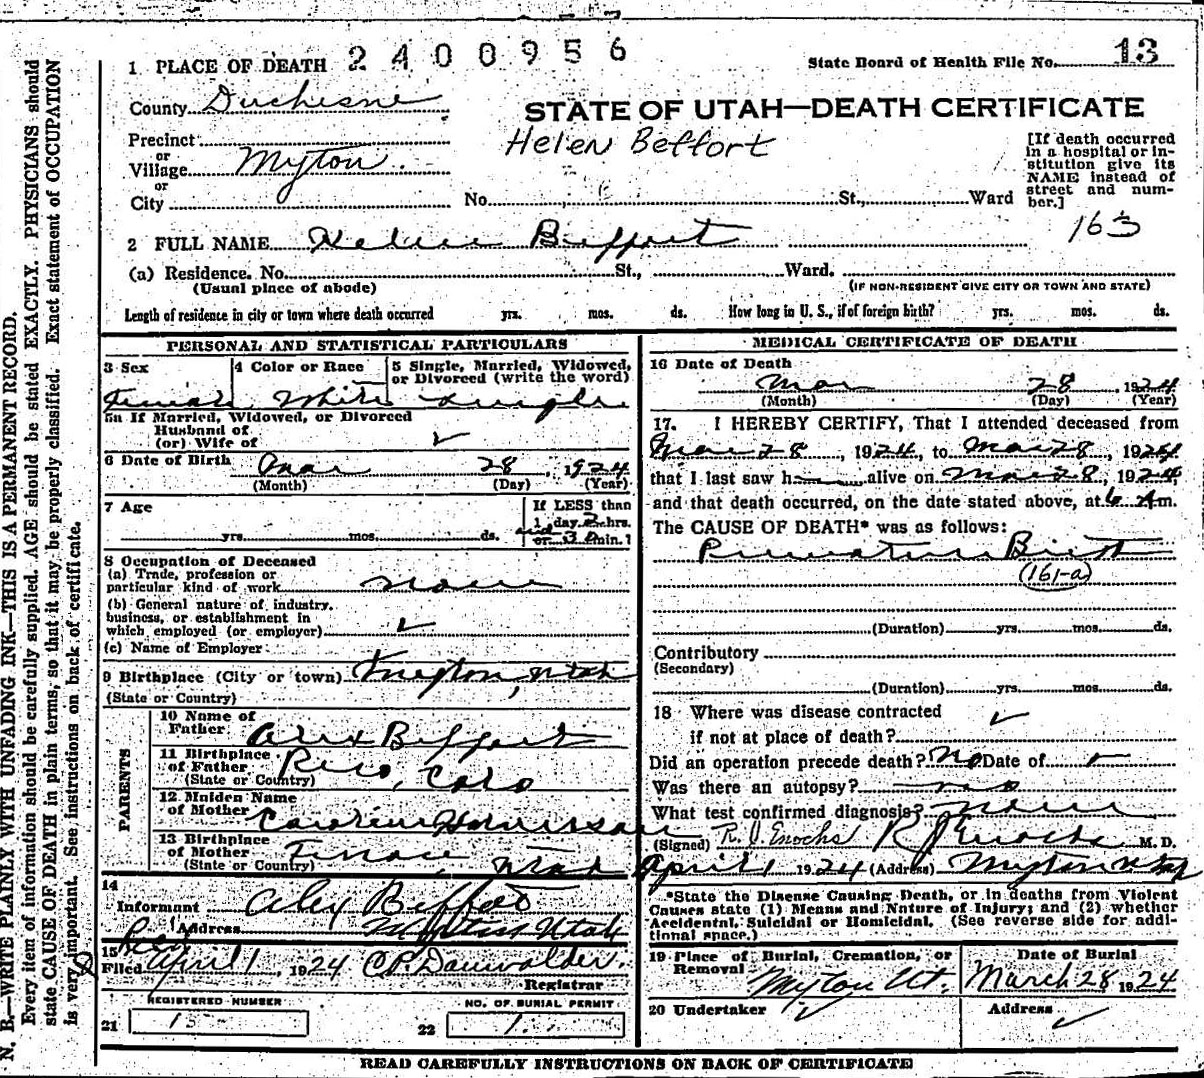 2400956
State Board of Health File No. 13
1 PLACE OF DEATH
County Duchesne
STATE OF UTAH—DEATH CERTIFICATE
Precinct
or
Village Myton
or
City
Helen Beffort
No. St., Ward
[If death occurred
in a hospital or in-
stitution give its
NAME instead of
street and num-
ber.]
163
2 FULL NAME Helen Beffort
(a) Residence. No. St., Ward.
(Usual place of abode)
(IF NON-RESIDENT GIVE CITY OR TOWN AND STATE)
Length of residence in city or town where death occurred yrs. mos. ds. How long in U. S., if of foreign birth? yrs. mos. ds.
PERSONAL AND STATISTICAL PARTICULARS
3 Sex
Female
4 Color or Race
White
5 Single, Married, Widowed,
or Divorced (write the word)
Single
5a If Married, Widowed, or Divorced
Husband of
(or) Wife of ✓
6 Date of Birth Mar 28, 1924
(Month) (Day) (Year)
7 Age
yrs. mos. ds.
If LESS than
1 day 2 hrs.
and
or 30 min.?
8 Occupation of Deceased
(a) Trade, profession or
particular kind of work none
(b) General nature of industry,
business, or establishment in
which employed (or employer) ✓
(c) Name of Employer
9 Birthplace (City or town) Myton, Utah
(State or Country)
PARENTS
10 Name of
Father Alex Beffort
11 Birthplace
of Father Rico, Colo
(State or Country)
12 Maiden Name
of Mother Caroline
13 Birthplace
of Mother Utah
(State or Country)
14
Informant Alex Beffort
Address Myton Utah
15
Filed April 1, 1924 C.P. Dauwalder.
Registrar
REGISTERED NUMBER
21 15
NO. OF BURIAL PERMIT
22 1
MEDICAL CERTIFICATE OF DEATH
16 Date of Death
Mar 28, 1924
(Month) (Day) (Year)
17. I HEREBY CERTIFY, That I attended deceased from
Mar 28, 1924, to Mar 28, 1924
that I last saw h alive on Mar 28, 1924
and that death occurred, on the date stated above, at 6 Am.
The CAUSE OF DEATH* was as follows:
Premature Birth
(161-a)
(Duration) yrs. mos. ds.
Contributory
(Secondary)
(Duration) yrs. mos. ds.
18 Where was disease contracted
if not at place of death? ✓
Did an operation precede death? no Date of ✓
Was there an autopsy? no
What test confirmed diagnosis? none
(Signed) R. J. Enochs R J Enochs M. D.
April 1 1924 (Address) Myton Utah
*State the Disease Causing Death, or in deaths from Violent
Causes state (1) Means and Nature of Injury; and (2) whether
Accidental, Suicidal or Homicidal. (See reverse side for addi-
tional space.)
19 Place of Burial, Cremation, or
Removal
Myton Ut.
Date of Burial
March 28 1924
20 Undertaker ✓
Address ✓
READ CAREFULLY INSTRUCTIONS ON BACK OF CERTIFICATE
N. B.—WRITE PLAINLY WITH UNFADING INK—THIS IS A PERMANENT RECORD.
Every item of information should be carefully supplied. AGE should be stated EXACTLY. PHYSICIANS should
state CAUSE OF DEATH in plain terms, so that it may be properly classified. Exact statement of OCCUPATION
is very important. See instructions on back of certificate.